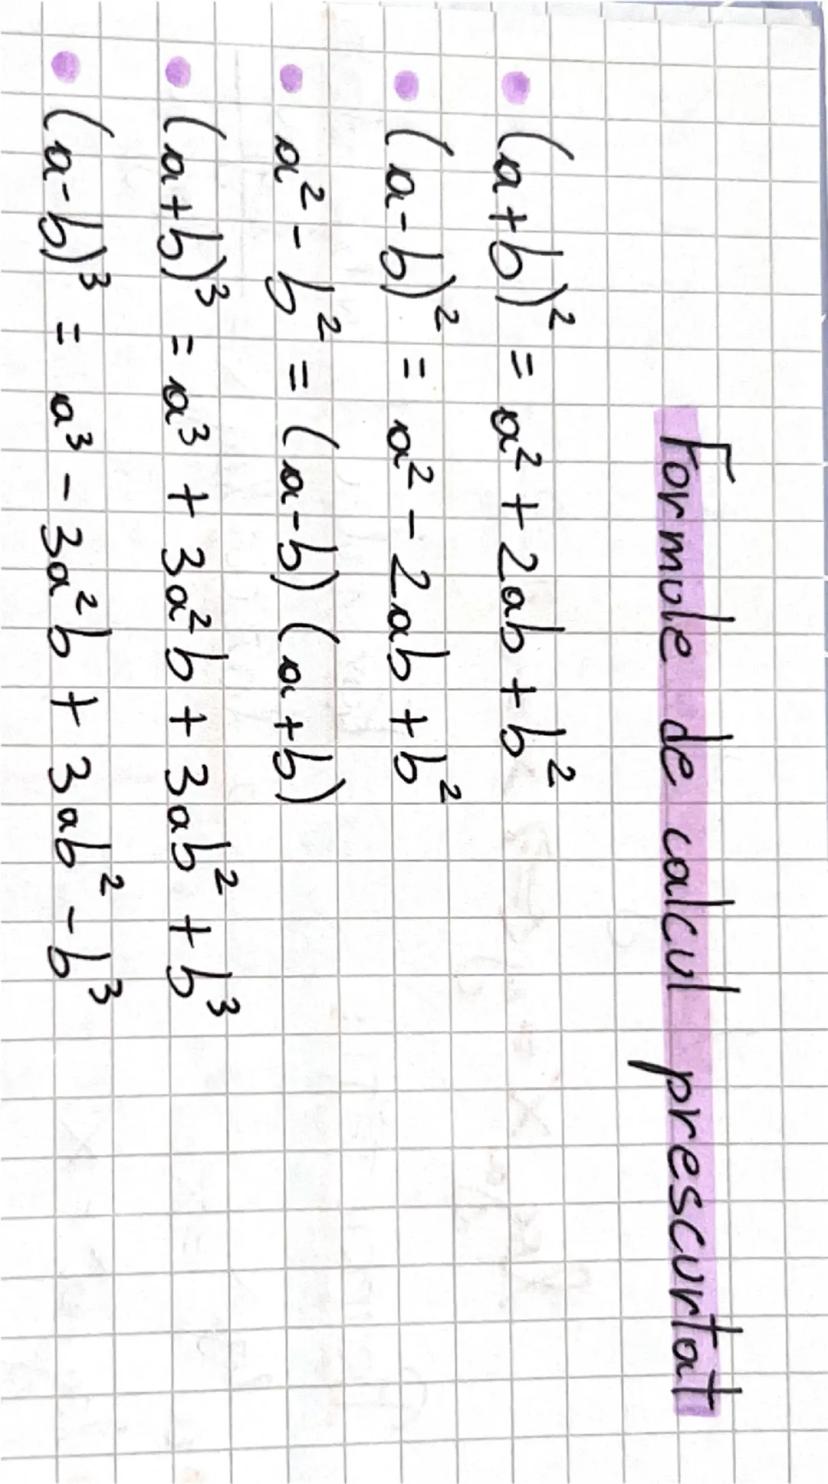 Formule de calcul prescurtat
(a+b)² = a² + 2ab + b²
(a-b)² = a² - 2ab + b²
a² - b² = (a-b)(a+b)
(a+b)³ = a³ + 3a²b + 3ab² + b³
(a-b)³ = a³ - 3a²b + 3ab² - b³